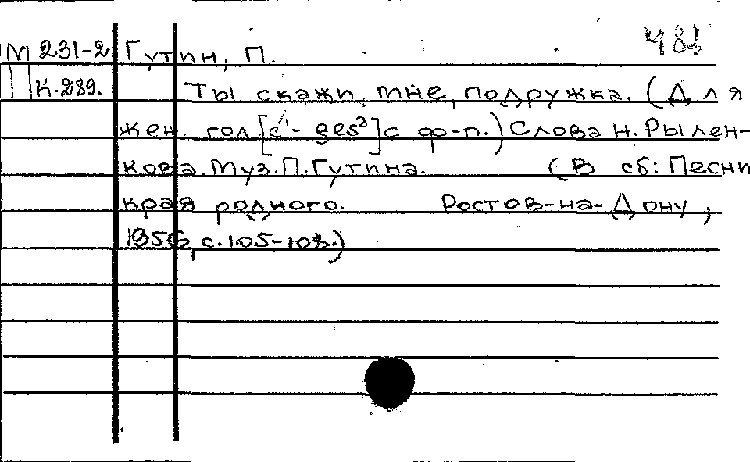 483
М 231-2 Гутин, П.
К.289. Ты скажи, мне, подружка. (Для
жен. гол[c¹-ges²]с ф-п.) Слова Н. Рылен-
кова. Муз. П. Гутина. (В сб: Песни
края родного. Ростов-на-Дону,
1956, с. 105-108.)